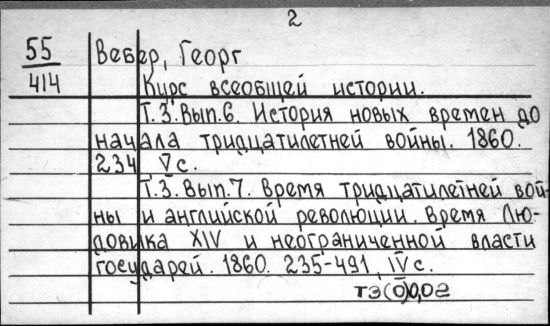 2
55
414
Вебер, Георг
Курс всеобщей истории.
Т.3.Вып.6. История новых времен до
начала тридцатилетней войны. 1860.
234 V с.
Т.3.Вып.7. Время тридцатилетней вой-
ны и английской революции. Время Лю-
довика XIV и неограниченной власти
государей. 1860. 235-491, IV с.
ТЭ(0)0,02